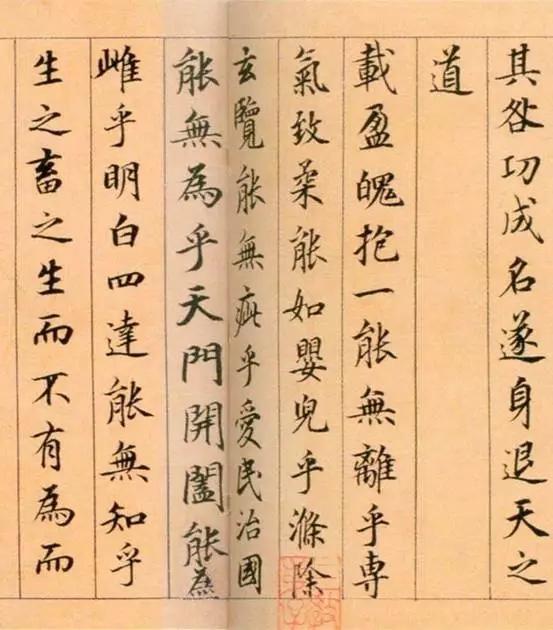 其咎功成名遂身退天之
道
載盈魄抱一能無離乎專
氣致柔能如嬰兒乎滌除
玄覽能無疵乎愛民治國
能無為乎天門開闔能為
雌乎明白四達能無知乎
生之畜之生而不有為而